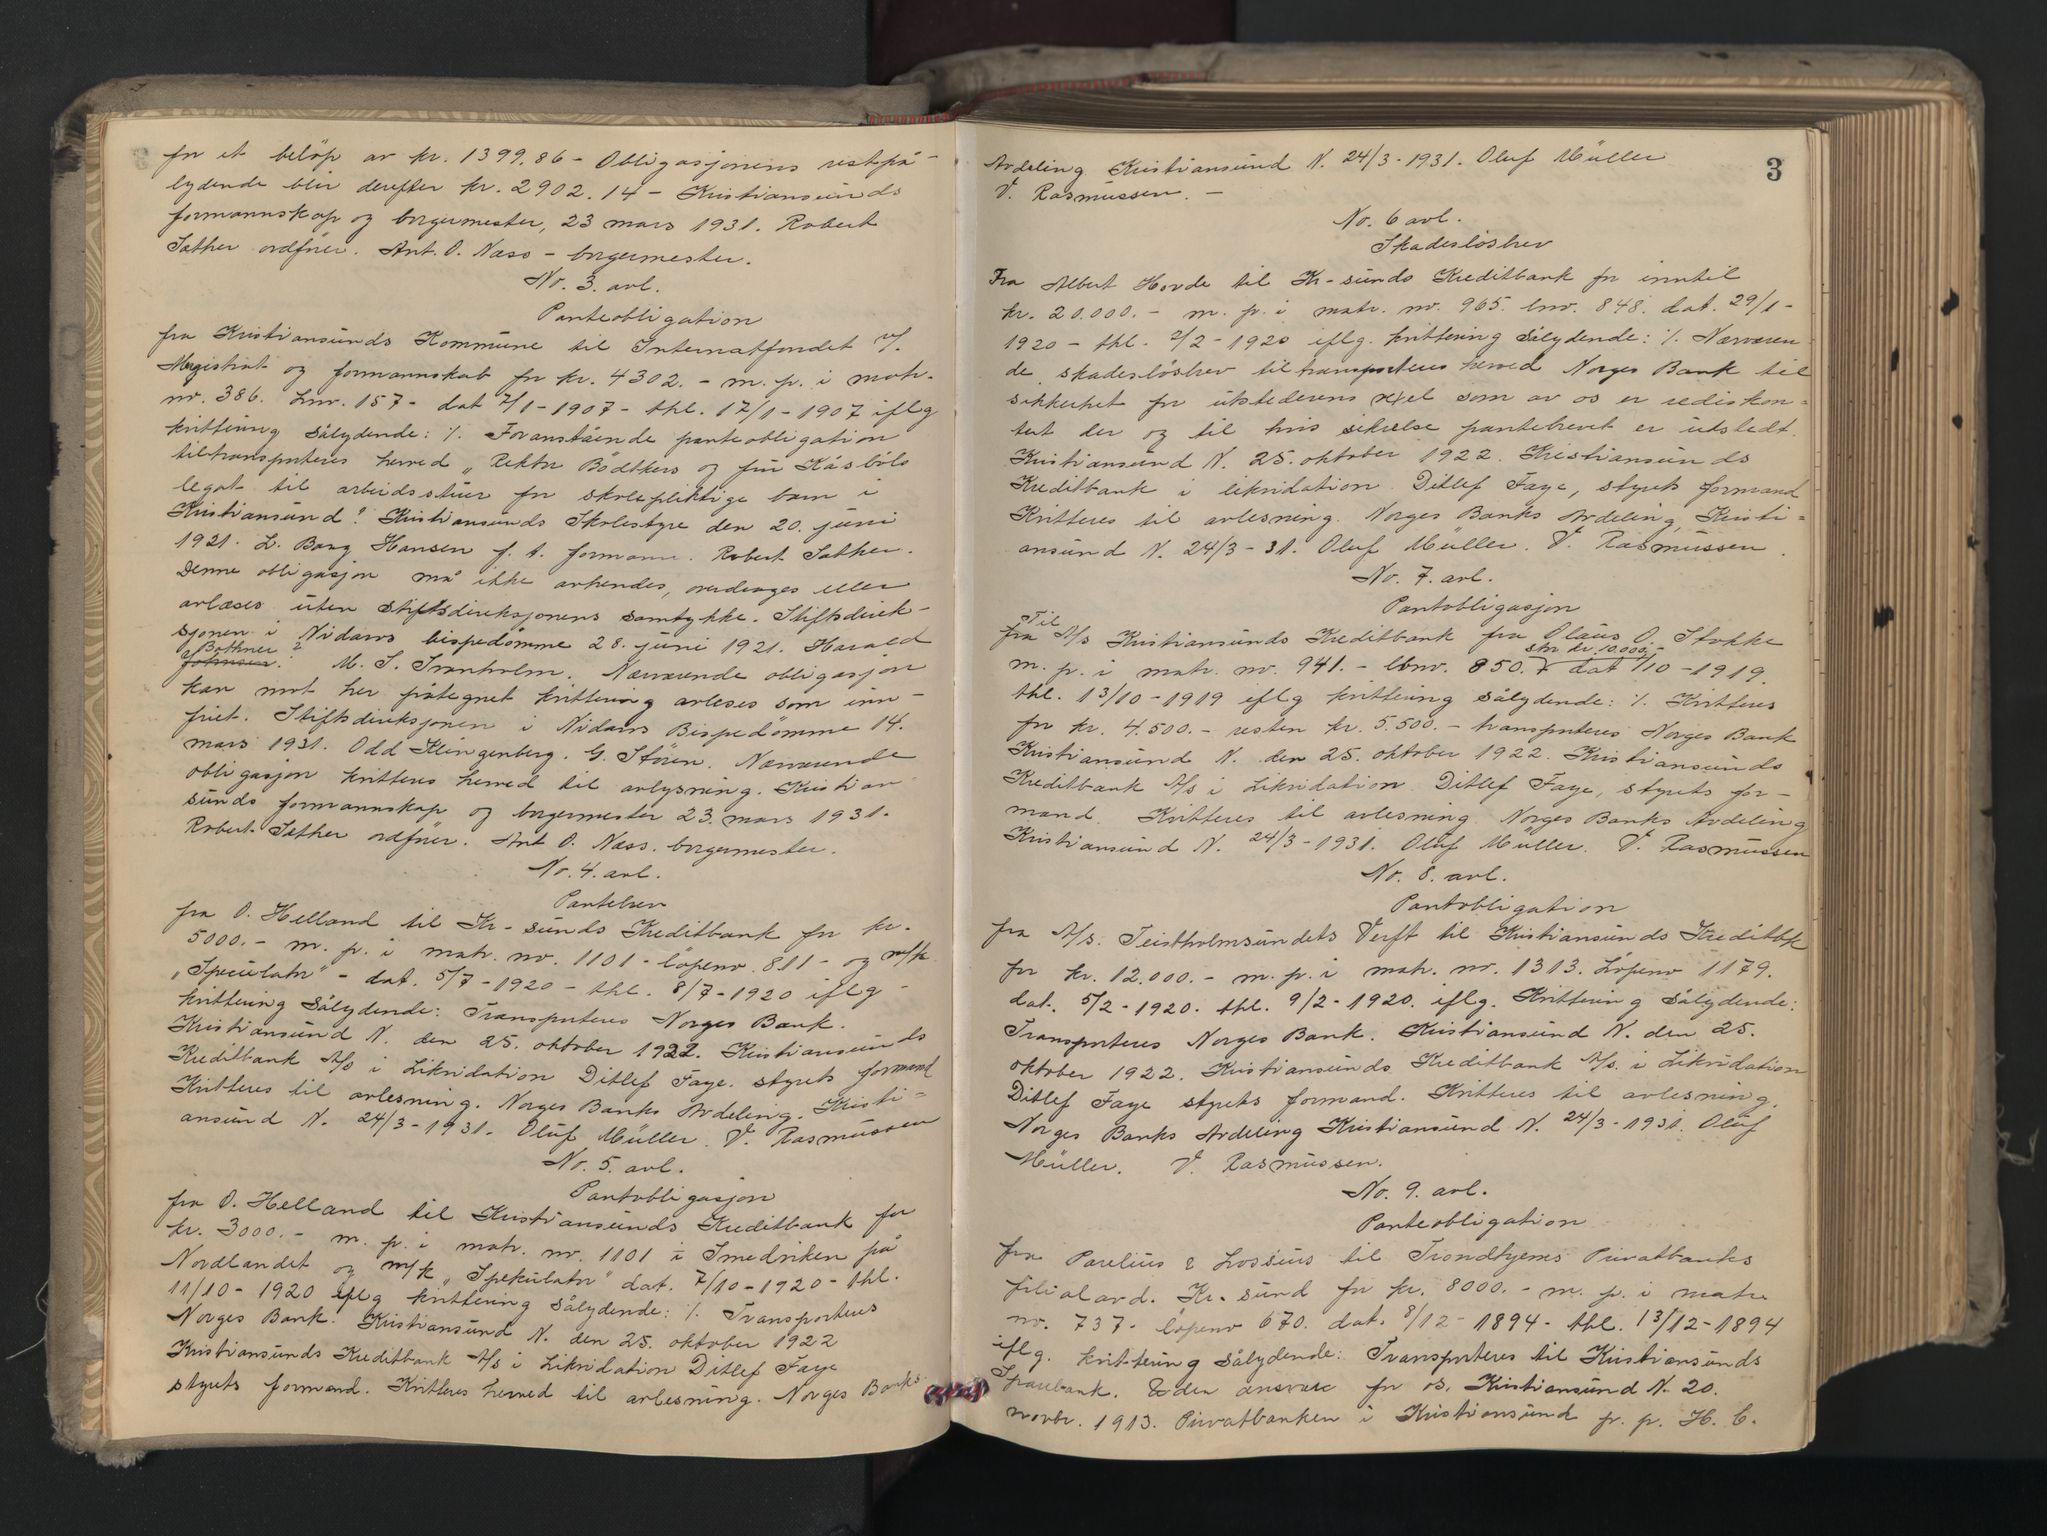 for et beløp av kr. 1399.86 - Obligasjonens restpå-
lydende blir derefter kr. 2902.14 - Kristiansunds
formannskap og borgermester, 23 mars 1931. Robert
Sæther ordfører. Ant. O. Næss - borgermester.
No. 3. avl.
Panteobligation
fra Kristiansunds Kommune til Internatfondet v/.
Magistrat og formannskab for kr. 4302. - m. p. i matr.
nr. 386. Lnr. 157 - dat 7/1 - 1907 - thl. 17/1 - 1907 iflg
kvittering sålydende: ./. Foranstående panteobligation
tiltransporteres herved "Rektor Bödtkers og frü Kåsböls
legat til arbeidsstuer for skolepliktige barn i
Kristiansund". Kristiansunds Skolestyre den 20. juni
1921. L. Bang Hansen f. t. formann. Robert Sæther.
Denne obligasjon må ikke avhendes, overdrages eller
avlæses uten stiftsdireksjonens samtykke. Stiftsdirek-
sjonen i Nidaros bispedømme 28. juni 1921. Harald
Bothner
Johnsen. M. S. Tranholm. Nærværende obligasjon
kan mot her påtegnet kvittering avleses som inn-
friet. Stiftsdireksjonen i Nidaros Bispedømme 14.
mars 1931. Odd Klingenberg. G. Stören. Nærværende
obligasjon kvitteres herved til avlysning. Kristian
sunds formannskap og borgermester 23. mars 1931.
Robert Sæther ordfører. Ant O. Næss. borgermester.
No. 4. avl.
Pantebrev
fra O. Helland til Kr-sunds Kreditbank for kr.
5000.- m. p. i matr. nr. 1101 - løpenr. 811 - og m/k
"Speculatr" - dat. 5/7 - 1920 - thl. 8/7 - 1920 iflg -
kvittering sålydende: Transporteres Norges Bank.
Kristiansund N. den 25. oktober 1922. Kristiansunds
Kreditbank A/S i Likvidation Ditlef Faye. styrets formand
Kvitteres til avlesning. Norges Banks Avdeling. Kristi=
ansund N. 24/3 - 1931. Oluf Müller. V. Rasmussen
No. 5. avl.
Pantobligasjon
fra O. Helland til Kristiansunds Kreditbank for
kr. 3000.- m. p. i matr. nr. 1101 i Smedviken på
Nordlandet og m/k "Spekulatr" dat. 7/10 - 1920 - thl.
11/10 - 1920 iflg kvittering sålydende: ./. Transporteres
Norges Bank. Kristiansund N. den 25. oktober 1922
Kristiansunds Kreditbank A/S i Likvidation Ditlef Faye
styrets formand. Kvitteres herved til avlesning. Norges Banks
3
Avdeling Kristiansund N. 24/3 - 1931. Oluf Müller
V. Rasmussen. -
No. 6 avl.
Skadesløsbrev
Fra Albert Hovde til Kr-sunds Kreditbank for inntil
kr. 20.000.- m. p. i matr. nr. 965. lnr. 848. dat. 29/1 -
1920 - thl. 2/2 - 1920 iflg. kvittering sålydende: ./. Nærværen-
de skadesløsbrev tiltransporteres herved Norges Bank til
sikkerhet for utstederens vexel som av os er rediskon=
tert der og til hvis sikrelse pantebrevet er utstedt.
Kristiansund N. 25. oktober 1922. Kristiansunds
Kreditbank i likvidation. Ditlef Faye, styrets formand
Kvitteres til avlesning. Norges Banks Avdeling, Kristi=
ansund N. 24/3 - 31. Oluf Müller. V. Rasmussen.
No. 7. avl.
Pantobligasjon
Til
fra A/s Kristiansunds Kreditbank fra Olaus O. Stokke
stor kr. 10.000.-
m. p. i matr. nr. 941. - lbnr. 850. dat 1/10 - 1919.
thl. 13/10 - 1919 iflg kvittering sålydende: ./. Kvitteres
for kr. 4.500. - resten kr. 5.500. - transporteres Norges Bank
Kristiansund N. den 25. oktober 1922. Kristiansunds
Kreditbank A/S i Likvidation. Ditlef Faye, styrets for-
mand. Kvitteres til avlesning. Norges Banks Avdeling
Kristiansund N. 24/3 - 1931. Oluf Müller. V. Rasmussen
No. 8. avl.
Pantobligation
fra A/S. Teistholmsundets Verft til Kristiansunds Kreditbk
for kr. 12.000. - m. p. i matr. nr. 1313. Løpenr 1179.
dat. 5/2 - 1920. thl. 9/2 - 1920. iflg. Kvittering sålydende:
Transporteres Norges Bank. Kristiansund N. den 25.
oktober 1922. Kristiansunds Kreditbank A/S. i Likvidation
Ditlef Faye styrets formand. Kvitteres til avlesning.
Norges Banks Avdeling Kristiansund N. 24/3 - 1931. Oluf
Müller. V. Rasmussen.
No. 9. avl.
Panteobligation
fra Parelius & Lossius til Trondhjems Privatbanks
filialavd. Kr.sund for kr. 8000. - m. p. i matr
nr. 737 - løpenr 670. dat. 8/12 - 1894 - thl. 13/12 - 1894
iflg. kvittering sålydende: Transporteres til Kristiansunds
Sparebank. Uden ansvar for os. Kristiansund N. 20.
novbr. 1913. Privatbanken i Kristiansund p. p. H. C.